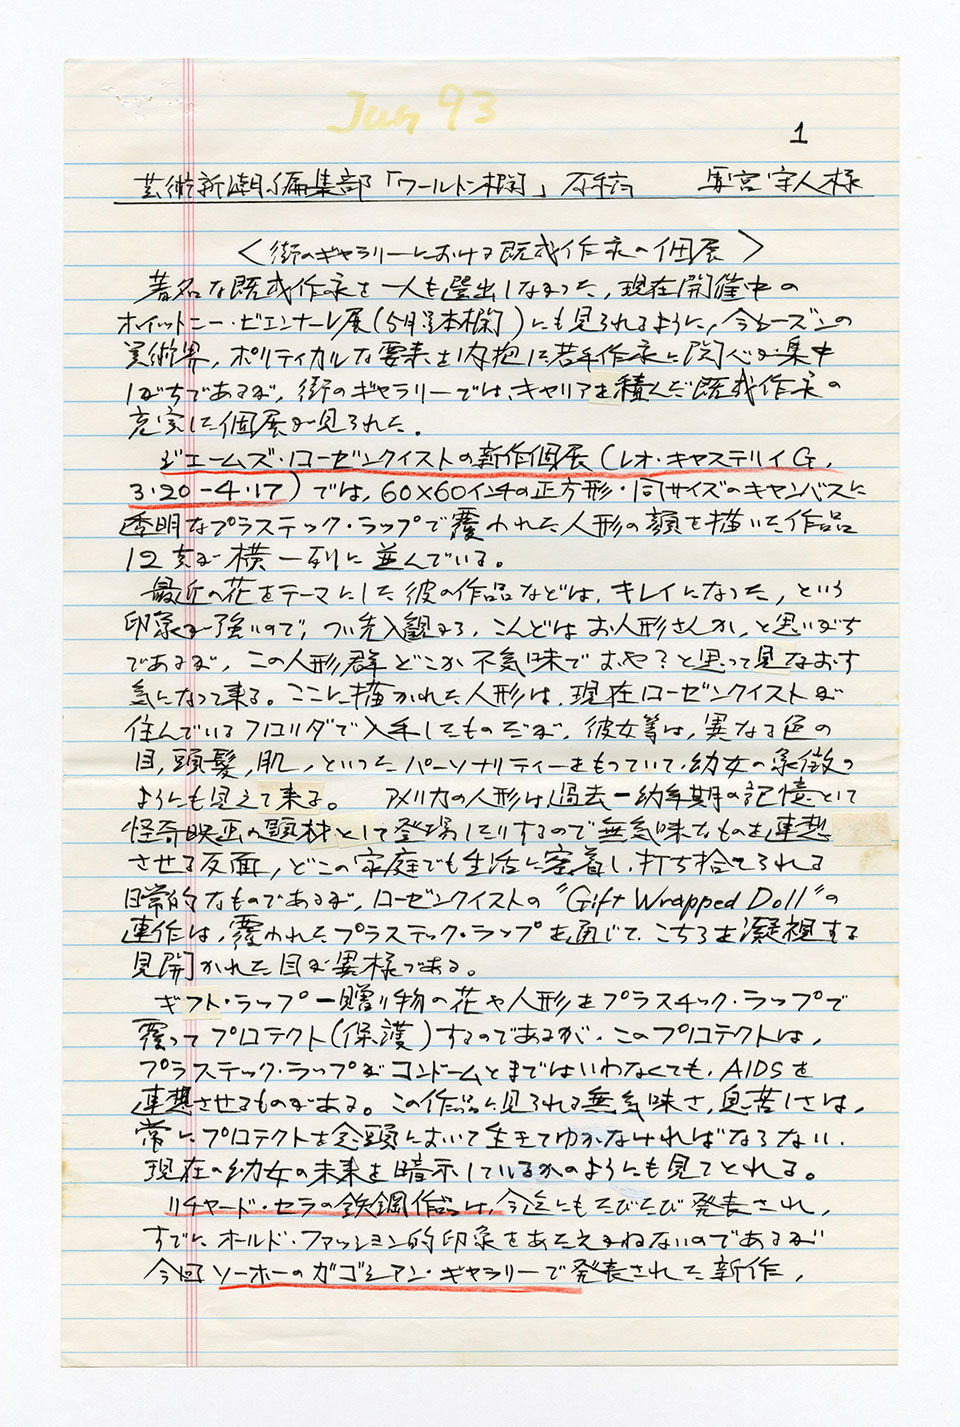 Jun 93
1
芸術新潮編集部「ワールド欄」原稿 雨宮守人様
〈街のギャラリーにおける既成作家の個展〉
著名な既成作家を一人も選出しなかった、現在開催中の
ホイットニー・ビエンナーレ展(5月号本欄)にも見られるように、今シーズンの
美術界、ポリティカルな要素を内抱した若手作家に関心が集中
しがちであるが、街のギャラリーでは、キャリアを積んだ既成作家の
充実した個展が見られた。
ジェームズ・ローゼンクイストの新作個展(レオ・キャステリイG,
3・20-4・17)では、60×60インチの正方形・同サイズのキャンバスに
透明なプラスティック・ラップで覆われた人形の顔を描いた作品
12点が横一列に並んでいる。
最近の花をテーマにした彼の作品などは、キレイになった、という
印象が強いので、つい先入観から、こんどはお人形さんか、と思いがち
であるが、この人形群どこか不気味でおや?と思って見なおす
気になって来る。ここに描かれた人形は、現在ローゼンクイストが
住んでいるフロリダで入手したものだが、彼女等は、異なる色の
目,頭髪,肌,といったパーソナリティーをもっていて、幼女の象徴の
ようにも見えて来る。 アメリカの人形は過去一幼年期の記憶として
怪奇映画の題材として登場したりするので無気味なものを連想
させる反面,どこの家庭でも生活に密着し,打ち捨てられる
日常的なものであるが,ローゼンクイストの“Gift Wrapped Doll”の
連作は,覆われたプラスティック・ラップを通じて、こちらを凝視する
見開かれた目が異様である。
ギフト・ラップ一贈り物の花や人形をプラスチック・ラップで
覆ってプロテクト(保護)するのであるが、このプロテクトは,
プラスティック・ラップがコンドームとまではいわなくても、AIDSを
連想させるものがある。この作品に見られる無気味さ,息苦しさは,
常にプロテクトを念頭において生きてゆかなければならない、
現在の幼女の未来を暗示しているかのようにも見てとれる。
リチャード・セラの鉄鋼作品は,今迄にもたびたび発表され,
すでにオールド・ファッション的印象をあたえかねないのであるが
今回ソーホーのガゴシアン・ギャラリーで発表された新作,